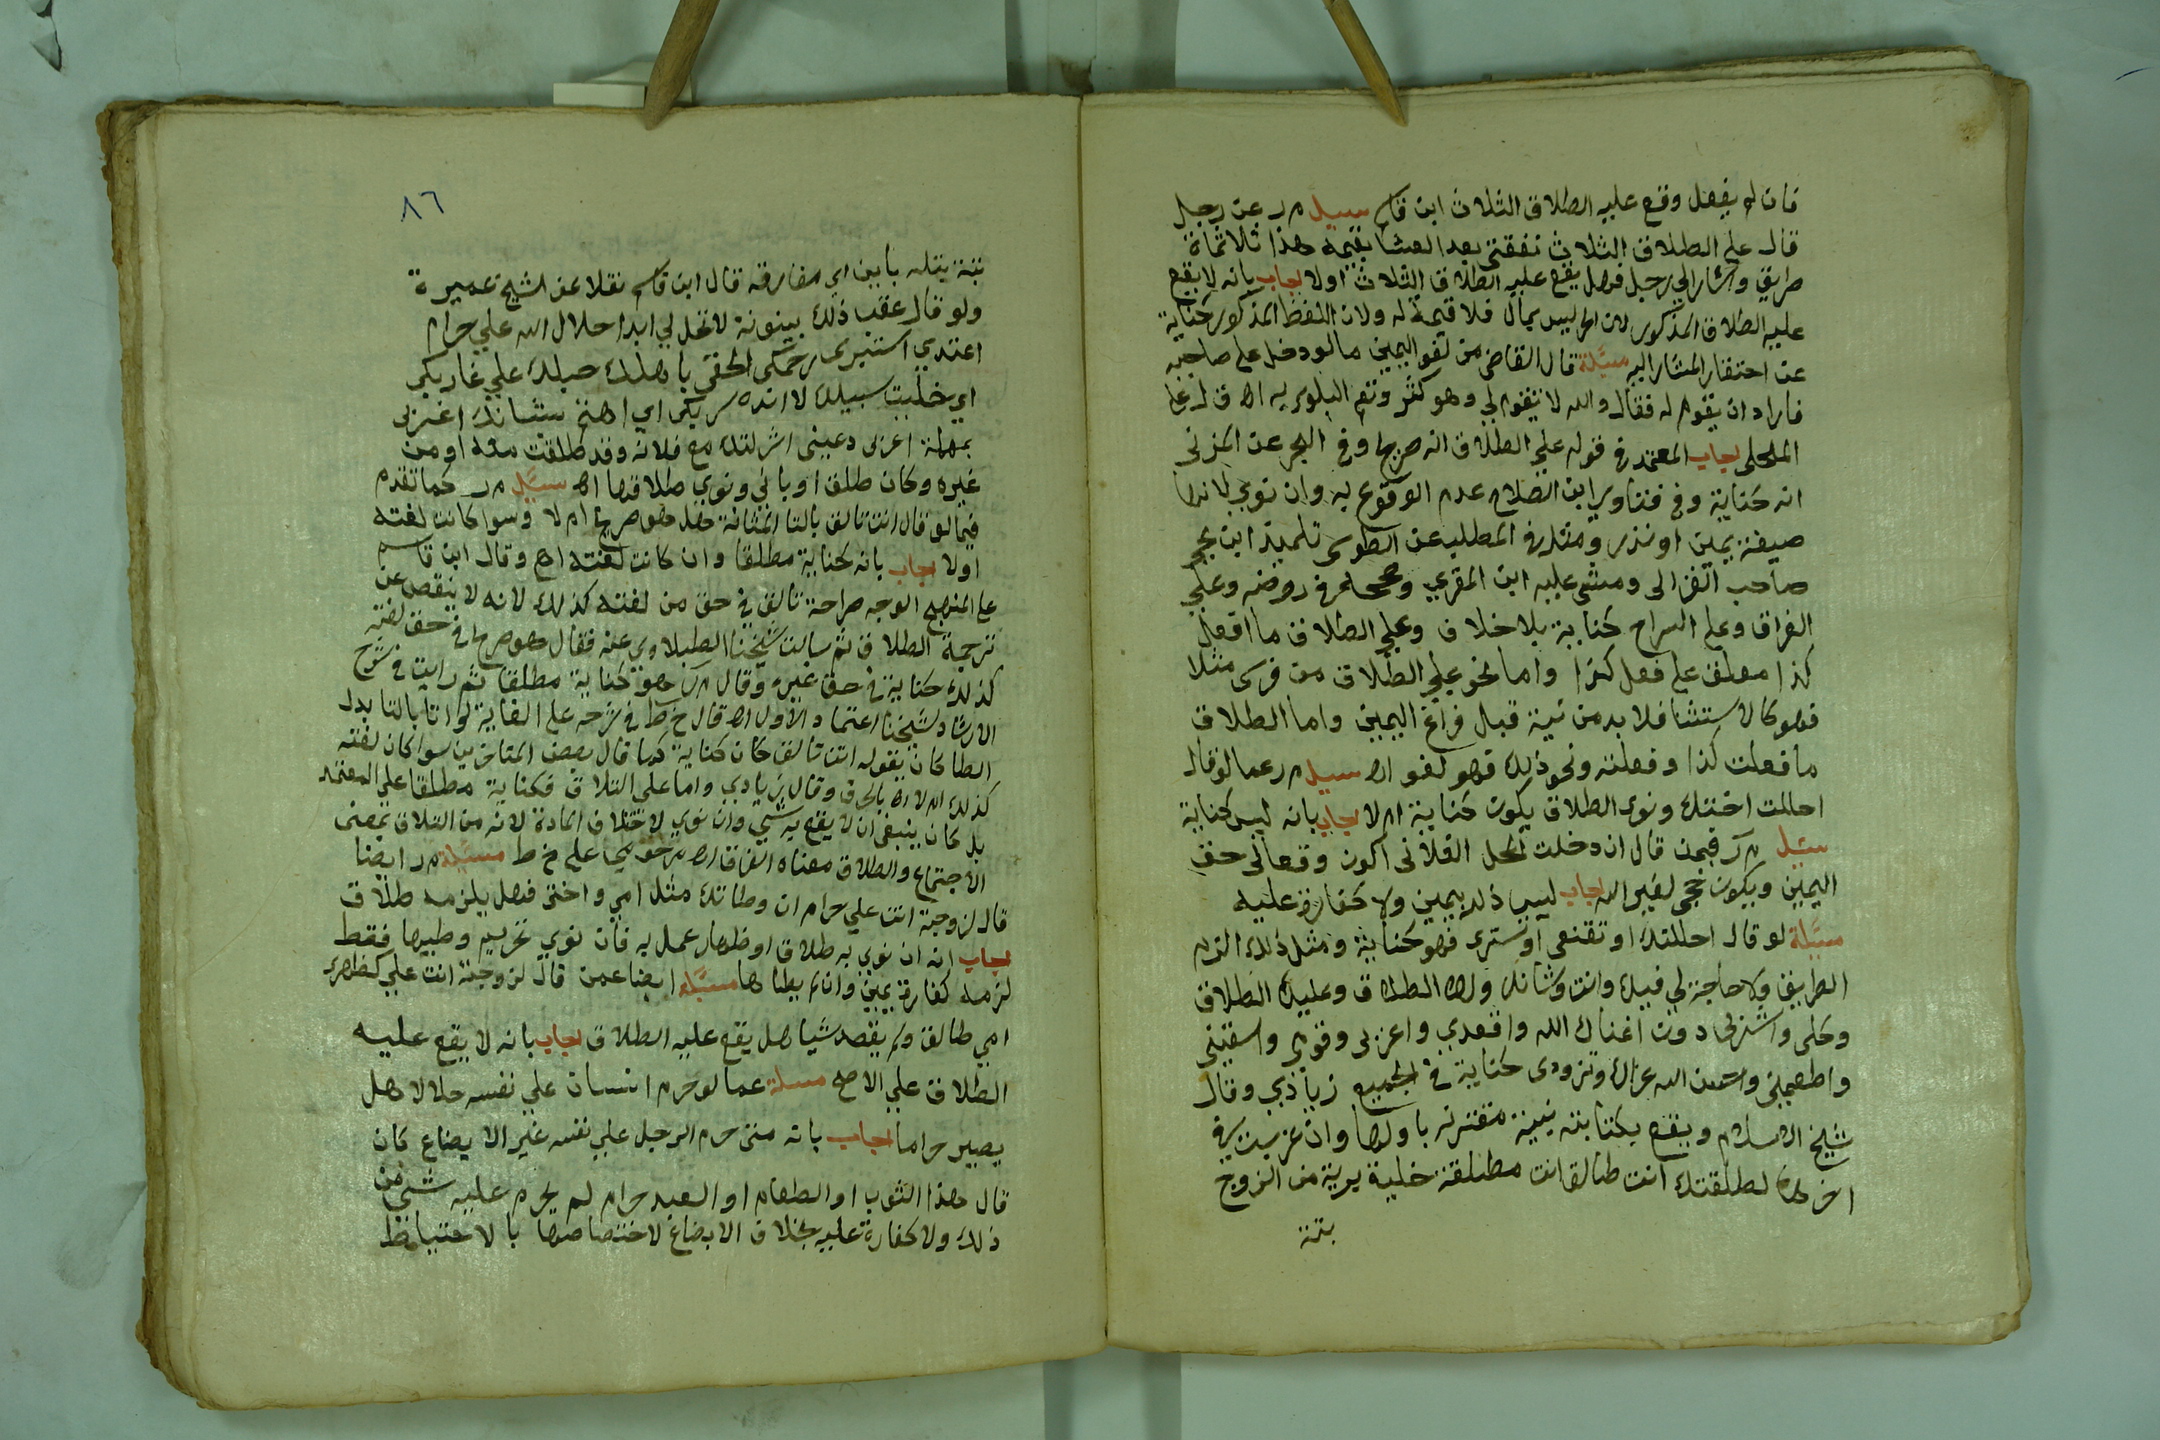 فان لم يفعل وقع عليه الطلاق الثلاث ابن قاسم سيل م ر عن رجل
قال علي الطلاق الثلاث نفقتي بعد العشا بقيمة هذا ثلاثماة
طريق واشار الي رجل فهل يقع عليه الطلاق الثلاث او لا اجاب بانه لا يقع
عليه الطلاق المذكور لان الحر ليس بمال فلا قيمة له ولان اللفظ المذكور كناية
عن احتقار المشار اليه مسئلة قال القاضي من لغو اليمين ما لو دخل على صاحبه
فاراد ان يقوم له فقال والله لا تقوم لي وهو كثر وتعم البلوي به اه ق ل على
المحلى اجاب المعتمد في قوله علي الطلاق انه صريح وفي البحر عن المزني
انه كناية وفي فتاوي ابن الصلاح عدم الوقوع به وان نوي لانها
صيغة يمين او نذر ومثله في المطلب عن الطوسي تلميذ ابن يحيى
صاحب الغزالى ومشى عليه ابن المقري وصححه م ر في روضه وعلي
الفراق وعلي السراح كناية بلا خلاف وعلي الطلاق ما افعل
كذا معلق على فعل كذا واما نحو علي الطلاق من فرسى مثلا
فهو كالاستثنا فلا بد من نية قبل فراغ اليمين واما الطلاق
ما فعلت كذا وفعلته ونحو ذلك فهو لغو اه سيل م ر عما لو قال
احاللت اختك ونوى الطلاق يكون كناية ام لا اجاب بانه ليس كناية
سئيل م ر فيمن قال ان دخلت المحل الفلاني اكون وقعا لى حق
اليمين ويكون حجي لغير الله اجاب ليس ذلك بيمين ولا كفارة عليه
مسئلة لو قال احللتك او تقنعي او تستري فهو كناية ومثل ذلك الزم
الطريق ولا حاجة لي فيك وانت وشانك ولك الطلاق وعليك الطلاق
وكلى واشربى دون اغناك الله واقعدي واغربى وقومي واسقيني
واطعميني واحسن الله عزاك وتزودى كناية في الجميع زيادي وقال
شيخ الاسلام ويقع بكنايته بنية مقترنة باولها وان عزبت في
اخرها لطلقتك انت طالق انت مطلقة خلية برية من الزوج
بتة
٨٦
بتة بتلة باين اي مفارقه قال ابن قاسم نقلا عن الشيخ عميرة
ولو قال عقب ذلك بينونة لا تحل لي ابدا حلال الله علي حرام
اعتدي استبرى رحمك الحقي باهلك حبلك علي غاربك
اي خليت سبيلك لا انده سربك اي اهنم بشانك اغربى
بمهملة اعزبى دعينى اشركتك مع فلانه وقد طلقت منه او من
غيره وكان طلق او باني ونوي طلاقها اه سيل م ر كما تقدم
فيما لو قال انت تالق بالتا المثناة هل هو صريح ام لا وسوا كانت لغته
اولا اجاب بانه كناية مطلقا وان كانت لغته اه وقال ابن قاسم
على المنهج الوجه صراحة تالق في حق من لغته كذلك لانه لا ينقص عن
ترجمة الطلاق ثم سالت شيخنا الطبلاوي عنه فقال هو صريح في حق لغته
كذلك كناية في حق غيره وقال م ر هو كناية مطلقا ثم رايت في شرح
الارشاد لشيخنا اعتماد الاول اه قال خ ط في شرحه على الغاية لو اتا بالتا بدل
الطا كان يقوله انت تالق كان كناية كما قال بعض المتاخرين سوا كان لغته
كذلك ام لا اه بالحرف وقال زيادي واما علي التلاق فكناية مطلقا علي المعتمد
بل كان ينبغي ان لا يقع به شي وان نوي لاختلاف المادة لانه من التلاق بمعنى
الاجتماع والطلاق معناه الفراق اه مرحومي على خ ط مسئلة م ر ايضا
قال لزوجته انت علي حرام ان وطاتك مثل امي واختي فهل يلزمه طلاق
اجاب انه ان نوي به طلاق او ظهار عمل به فان نوي تحريم وطيها فقط
لزمه كفارة يمين وان لم يطاها مسئلة ايضا عمن قال لزوجته انت علي كظهر
امي طالق ولم يقصد شيا هل يقع عليه الطلاق اجاب بانه لا يقع عليه
الطلاق علي الاصح مسلة عما لو حرم انسان علي نفسه حلالا هل
يصير حراما اجاب بانه متى حرم الرجل علي نفسه غير الابضاع كان
قال هذا الثوب او الطعام او العبد حرام لم يحرم عليه شي من
ذلك ولا كفارة عليه بخلاف الابضاع لاختصاصها بالاحتياط